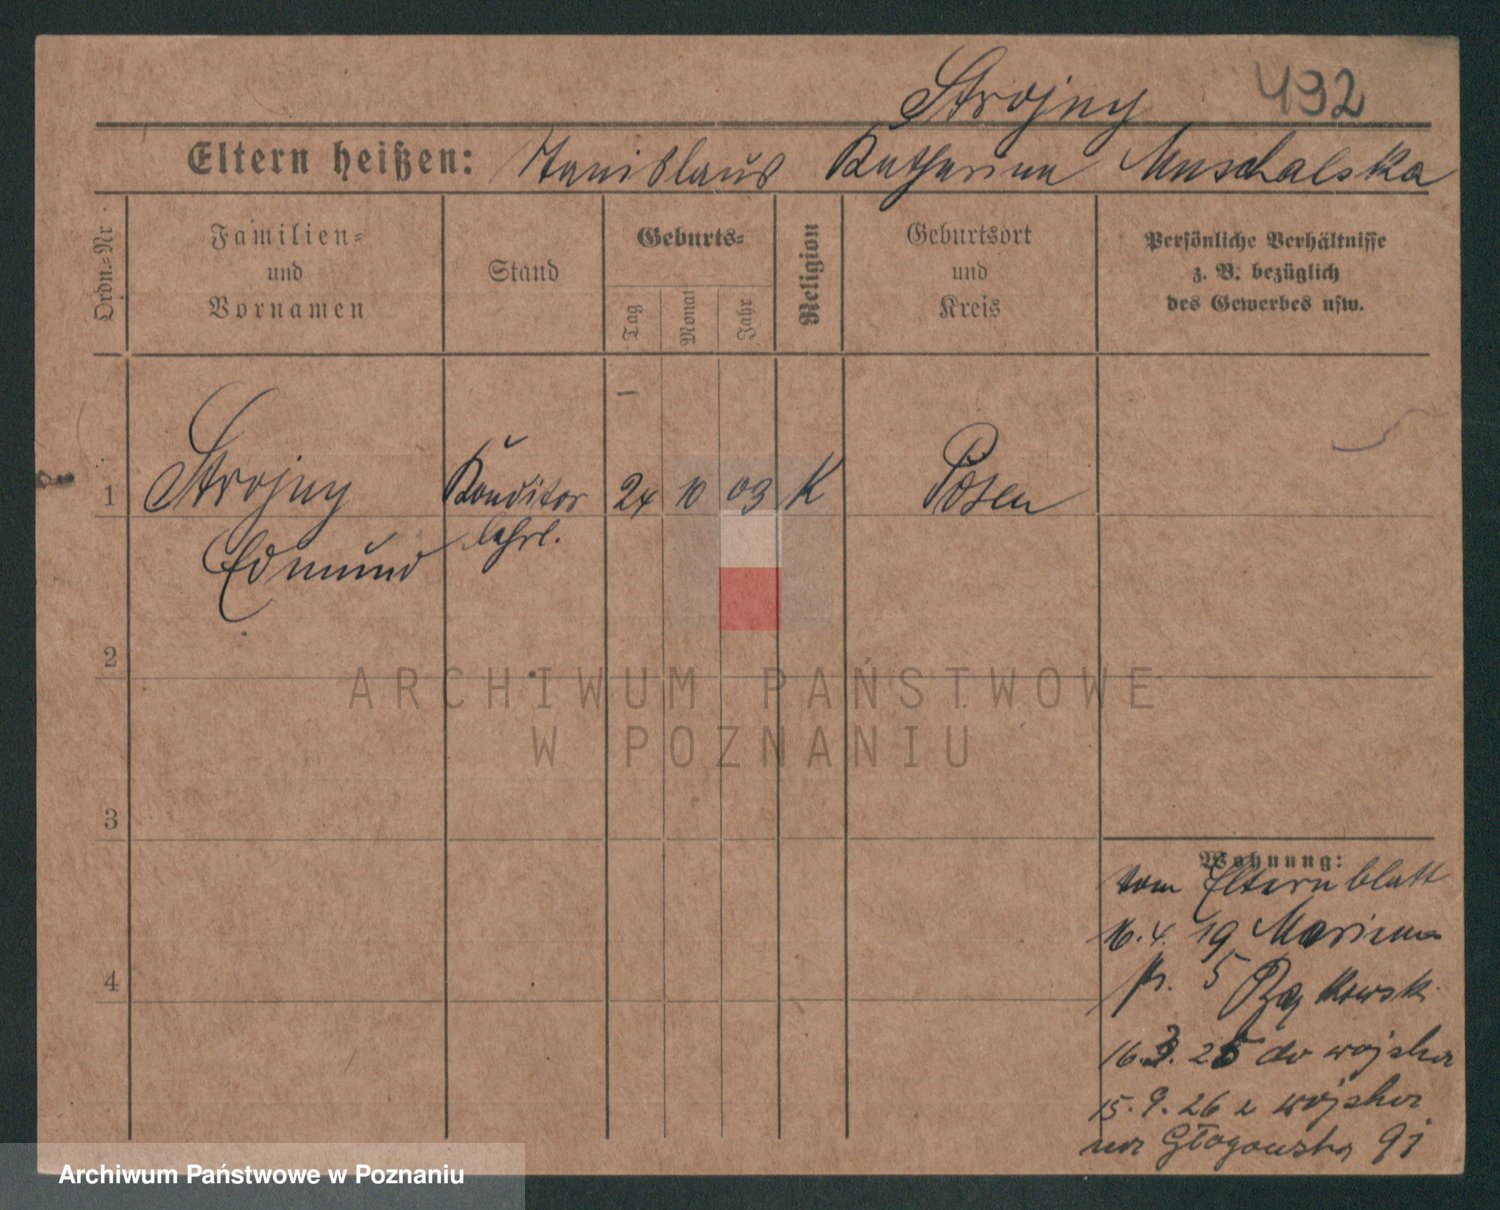 Strojny 492
Eltern heißen: Stanislaus Katharina Muschalska
Ordn.=Nr
Familien=
und
Vornamen
Stand
Geburts=
Tag
Monat
Jahr
Religion
Geburtsort
und
Kreis
Persönliche Verhältnisse
z. B. bezüglich
des Gewerbes usw.
1 Strojny Konditor 24 10 03 K Posen
Edmund lehrl.
2
3
4
Wohnung:
vom Elternblatt
16. 4. 19
5
16. 3. 25 do wojska
15. 9. 26 z wojska
na Głogowską 91
ARCHIWUM PAŃSTWOWE
W POZNANIU
Archiwum Państwowe w Poznaniu